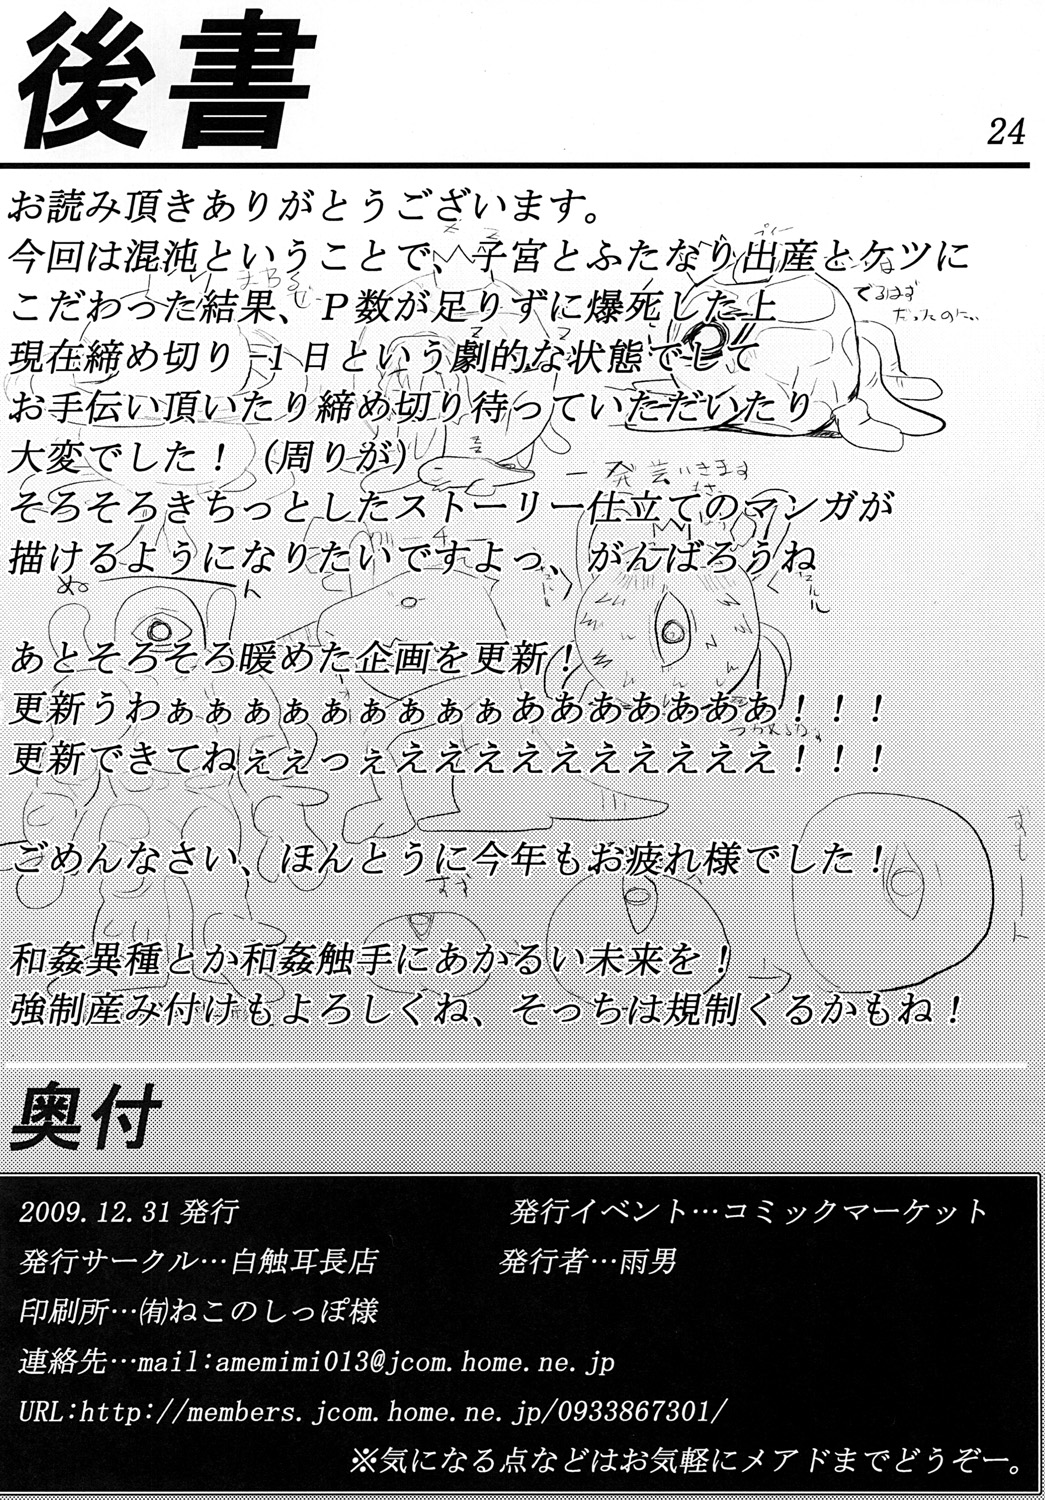 後書
24
お読み頂きありがとうございます。
今回は混沌ということで、子宮とふたなり出産とケツに
こだわった結果、P数が足りずに爆死した上
現在締め切り-1日という劇的な状態でして
お手伝い頂いたり締め切り待っていただいたり
大変でした！（周りが）
そろそろきちっとしたストーリー仕立てのマンガが
描けるようになりたいですよっ、がんばろうね
あとそろそろ暖めた企画を更新！
更新うわぁぁぁぁぁぁぁぁぁあああああああ！！！
更新できてねぇぇっぇええええええええええ！！！
ごめんなさい、ほんとうに今年もお疲れ様でした！
和姦異種とか和姦触手にあかるい未来を！
強制産み付けもよろしくね、そっちは規制くるかもね！
でるはず
だったのに
発芸いきます
ぬ
ん
ずもーん
奥付
2009.12.31発行 発行イベント…コミックマーケット
発行サークル…白触耳長店 発行者…雨男
印刷所…㈲ねこのしっぽ様
連絡先…mail:amemimi013@jcom.home.ne.jp
URL:http://members.jcom.home.ne.jp/0933867301/
※気になる点などはお気軽にメアドまでどうぞー。